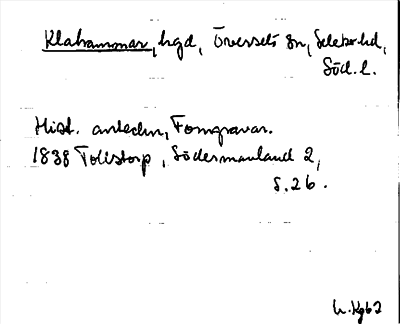 Klahammar, hgd, Överselö sn, Selebo hd,
Söd. l.
Hist. anteckn, Forngravar.
1838 Tolistorp, Södermanland 2,
s. 26.